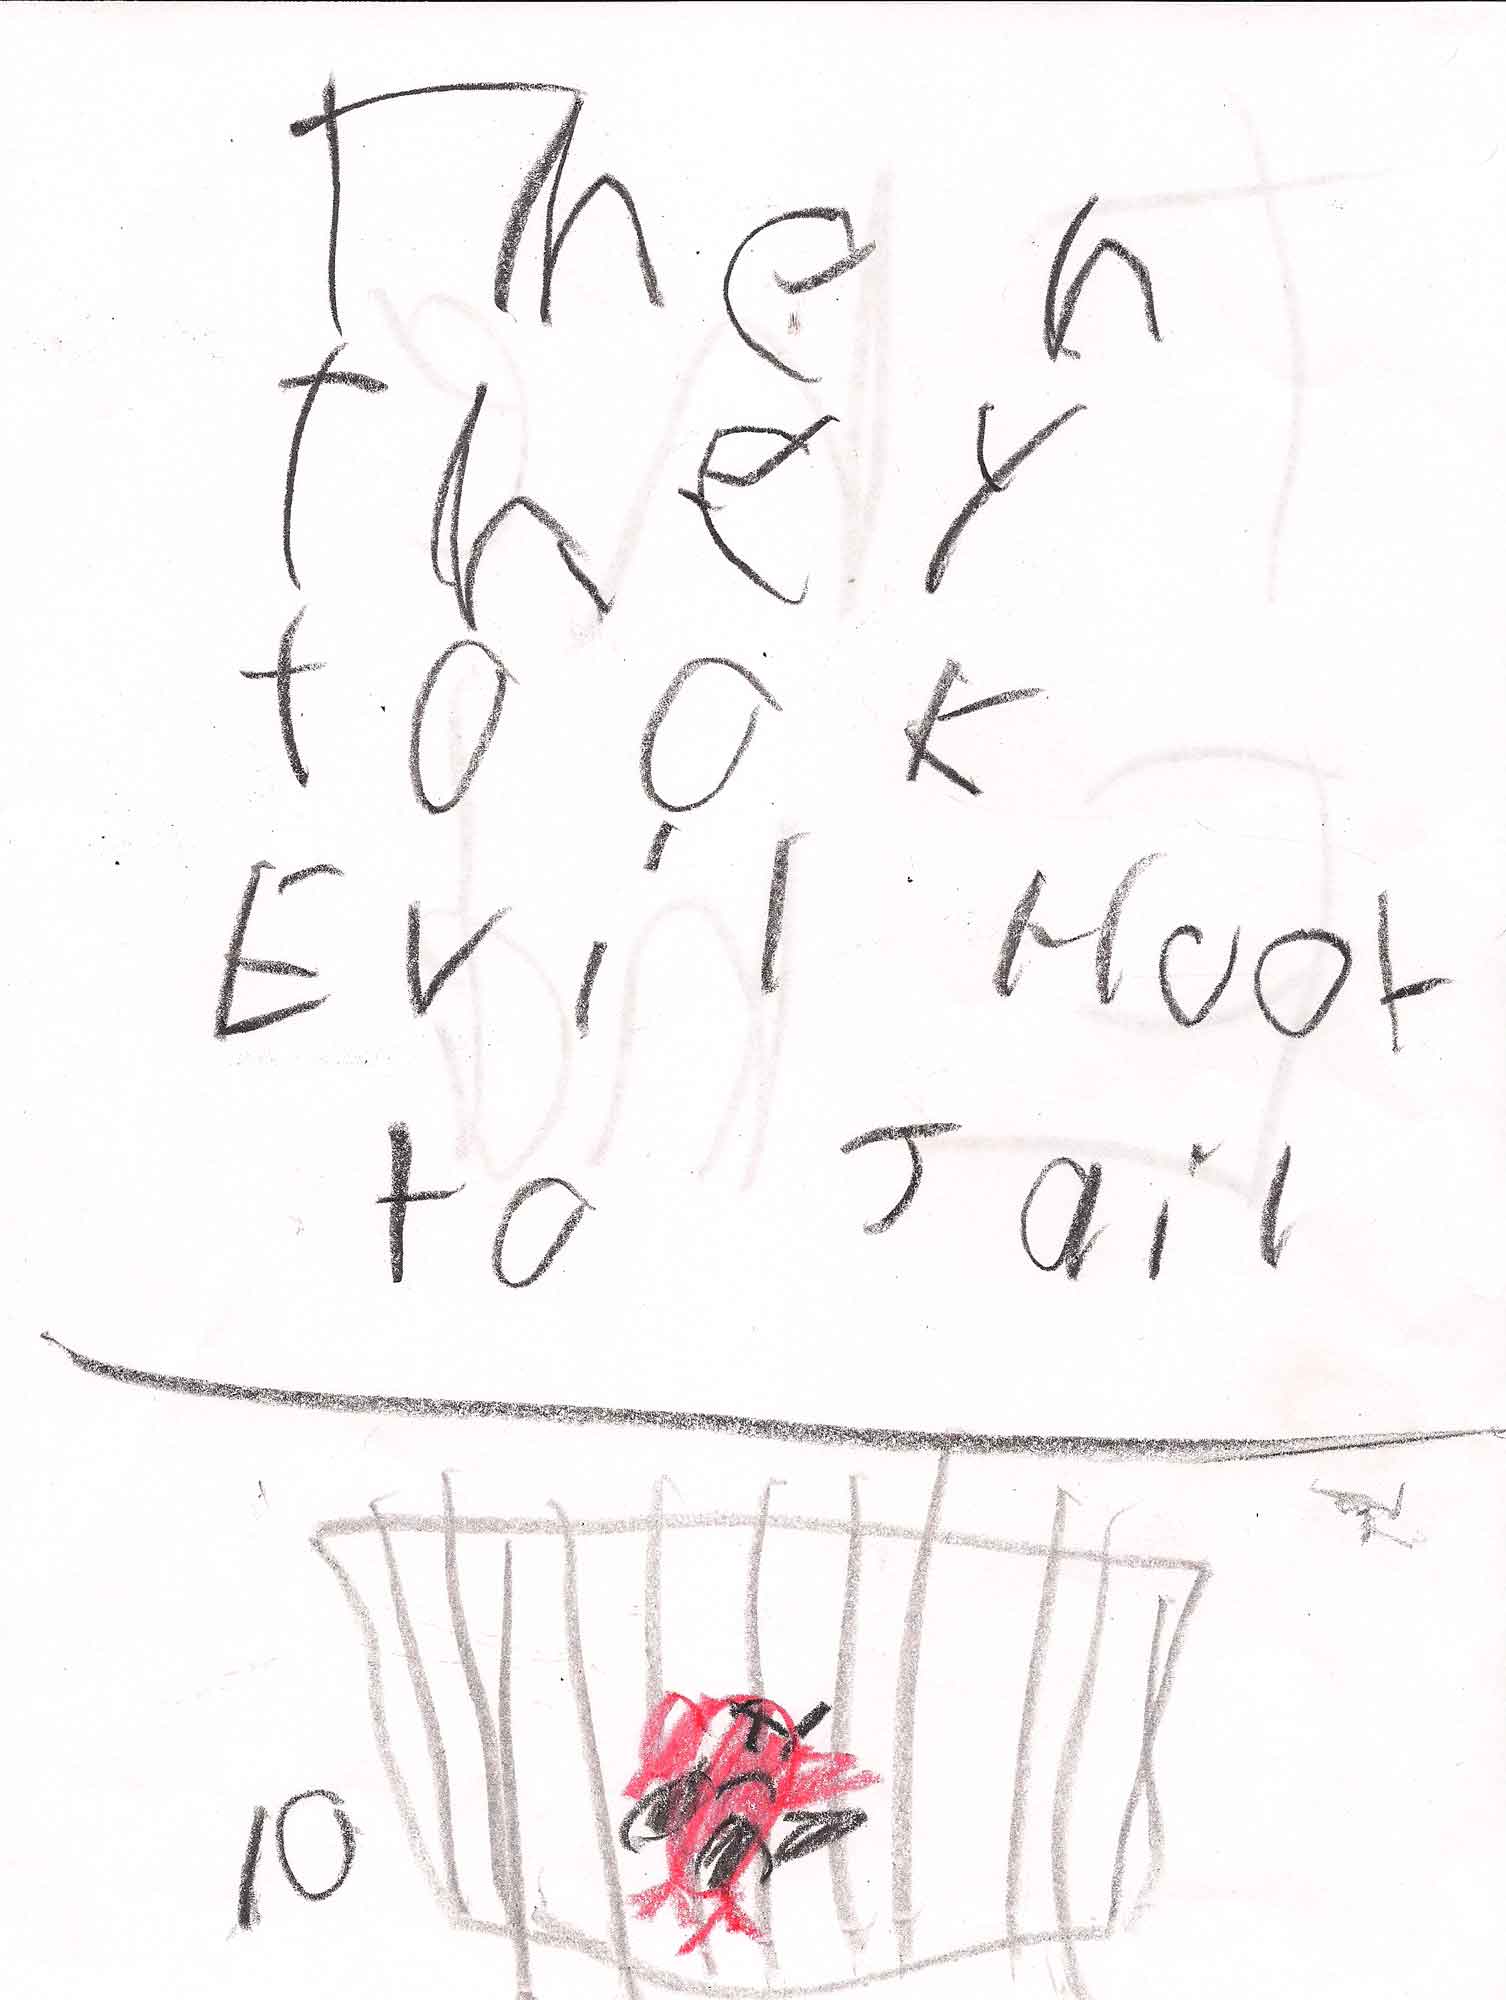 Then
they
took
Evil Hoot
to Jail
10